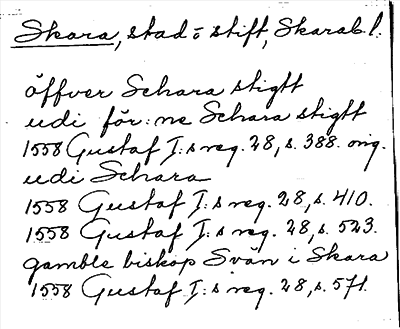 Skara, stad o stift, Skarab. l.
öffver Schara stigtt
udi för:ne Schara stigtt
1558 Gustaf I:s reg. 28, s. 388. orig.
udi Schara
1558 Gustaf I:s reg. 28, s. 410.
1558 Gustaf I:s reg. 28, s. 523.
gamble biskop Svän i Skara
1558 Gustaf I:s reg. 28, s. 571.